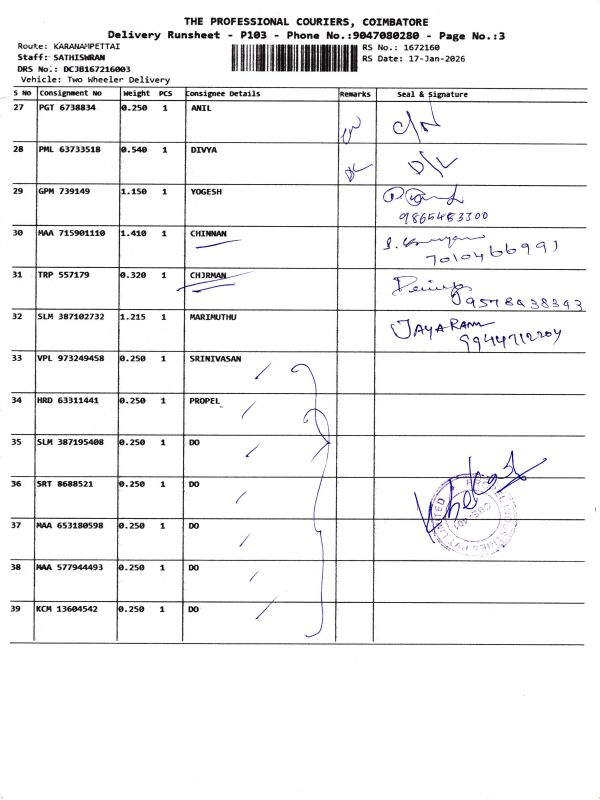 THE PROFESSIONAL COURIERS, COIMBATORE
Delivery Runsheet - P103 - Phone No.:9047080280 - Page No.:3
Route: KARANAMPETTAI
RS No.: 1672160
Staff: SATHISWRAN
RS Date: 17-Jan-2026
DRS No.: DCJB167216003
Vehicle: Two Wheeler Delivery
S No Consignment No Weight PCS Consignee Details Remarks Seal & Signature
27 PGT 6738834 0.250 1 ANIL
28 PML 63733518 0.540 1 DIVYA
29 GPM 739149 1.150 1 YOGESH
30 MAA 715901110 1.410 1 CHINNAN
7010466991
31 TRP 557179 0.320 1 CHJRMAN
32 SLM 387102732 1.215 1 MARIMUTHU
JAYARAM
9944712204
33 VPL 973249458 0.250 1 SRINIVASAN
34 HRD 63311441 0.250 1 PROPEL
35 SLM 387195408 0.250 1 DO
36 SRT 8688521 0.250 1 DO
37 MAA 653180598 0.250 1 DO
38 MAA 577944493 0.250 1 DO
39 KCM 13604542 0.250 1 DO